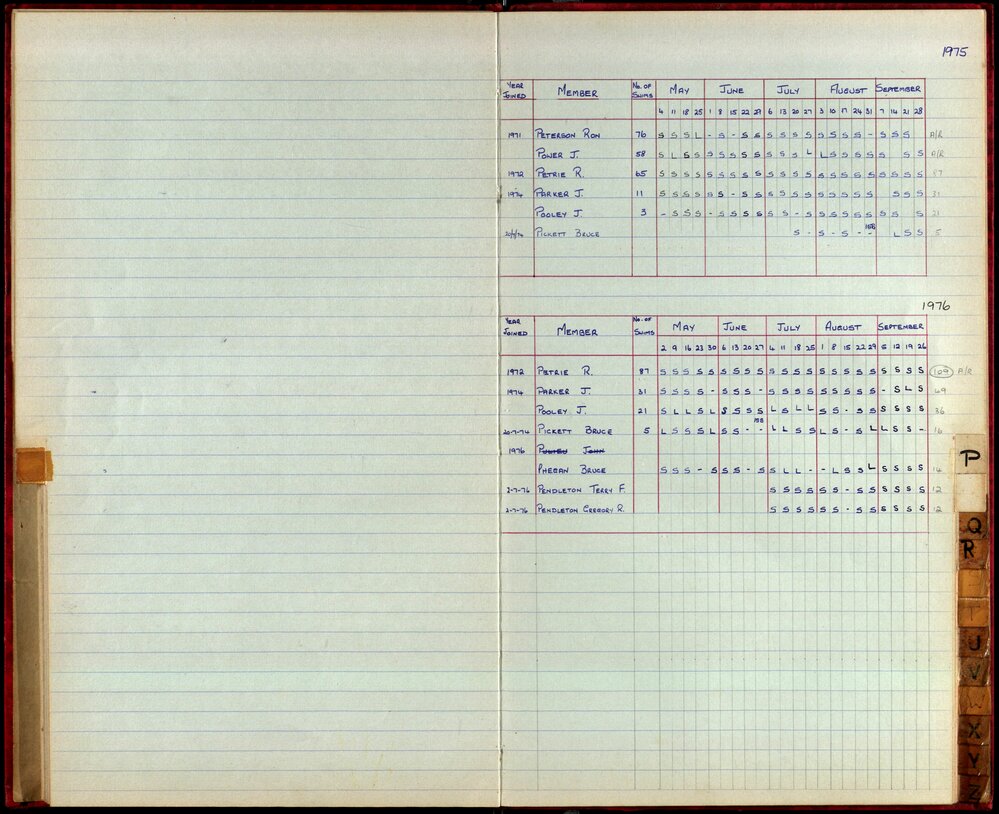 1975
YEAR JOINED MEMBER No. OF SWIMS MAY JUNE JULY AUGUST SEPTEMBER
4 11 18 25 1 8 15 22 29 6 13 20 27 3 10 17 24 31 7 14 21 28
1971 PETERSON RON 76 S S S L - S - S S S S S S S S S S - S S S A/R
POWER J. 58 S L S S S S S S S S S S L L S S S S S S S A/R
1972 PETRIE R. 65 S S S S S S S S S S S S S S S S S S S S S S 87
1974 PARKER J. 11 S S S S S S - S S S S S S S S S S S S S S 31
POOLEY J. 3 - S S S - S S S S S S - S S S S S S S S S 21
PICKETT BRUCE S - S - S - - L S S 5
1976
YEAR JOINED MEMBER No. OF SWIMS MAY JUNE JULY AUGUST SEPTEMBER
2 9 16 23 30 6 13 20 27 4 11 18 25 1 8 15 22 29 5 12 19 26
1972 PETRIE R. 87 S S S S S S S S S S S S S S S S S S S S S S 109 A/R
1974 PARKER J. 31 S S S S - S S S - S S S S S S S S S - S L S 49
POOLEY J. 21 S L L S L S S S S L S L L S S - S S S S S S 36
20-7-74 PICKETT BRUCE 5 L S S S L S S - - L L S S L S - S L L S S - 16
1976 JOHN
PHEGAN BRUCE S S S - S S S - S S L L - - L S S L S S S S 14
2-7-76 PENDLETON TERRY F. S S S S S S - S S S S S S 12
2-7-76 PENDLETON GREGORY R. S S S S S S - S S S S S S 12
P
Q
R
T
U
V
W
X
Y
Z